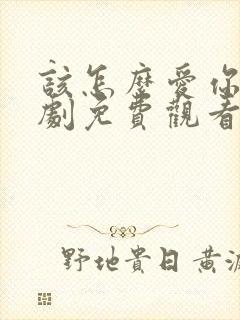 該怎麼愛你
劇免費觀看
野地貴日黃波